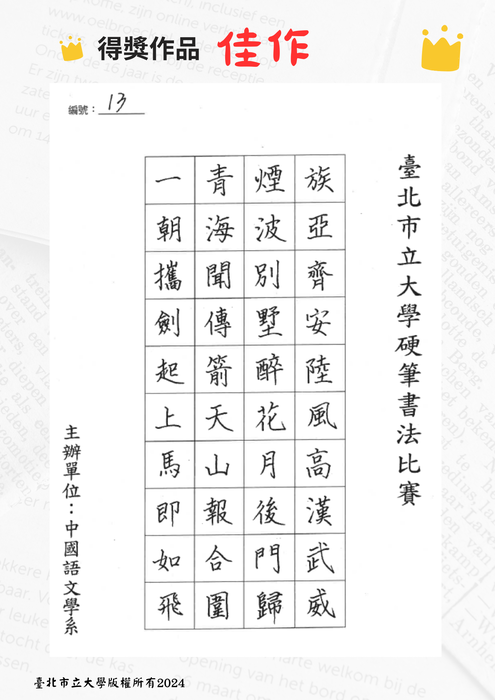 得獎作品 佳作
編號：13
臺北市立大學硬筆書法比賽
族亞齊安陸風高漢武威
煙波別墅醉花月後門歸
青海聞傳箭天山報合圍
一朝攜劍起上馬即如飛
主辦單位：中國語文學系
臺北市立大學版權所有2024